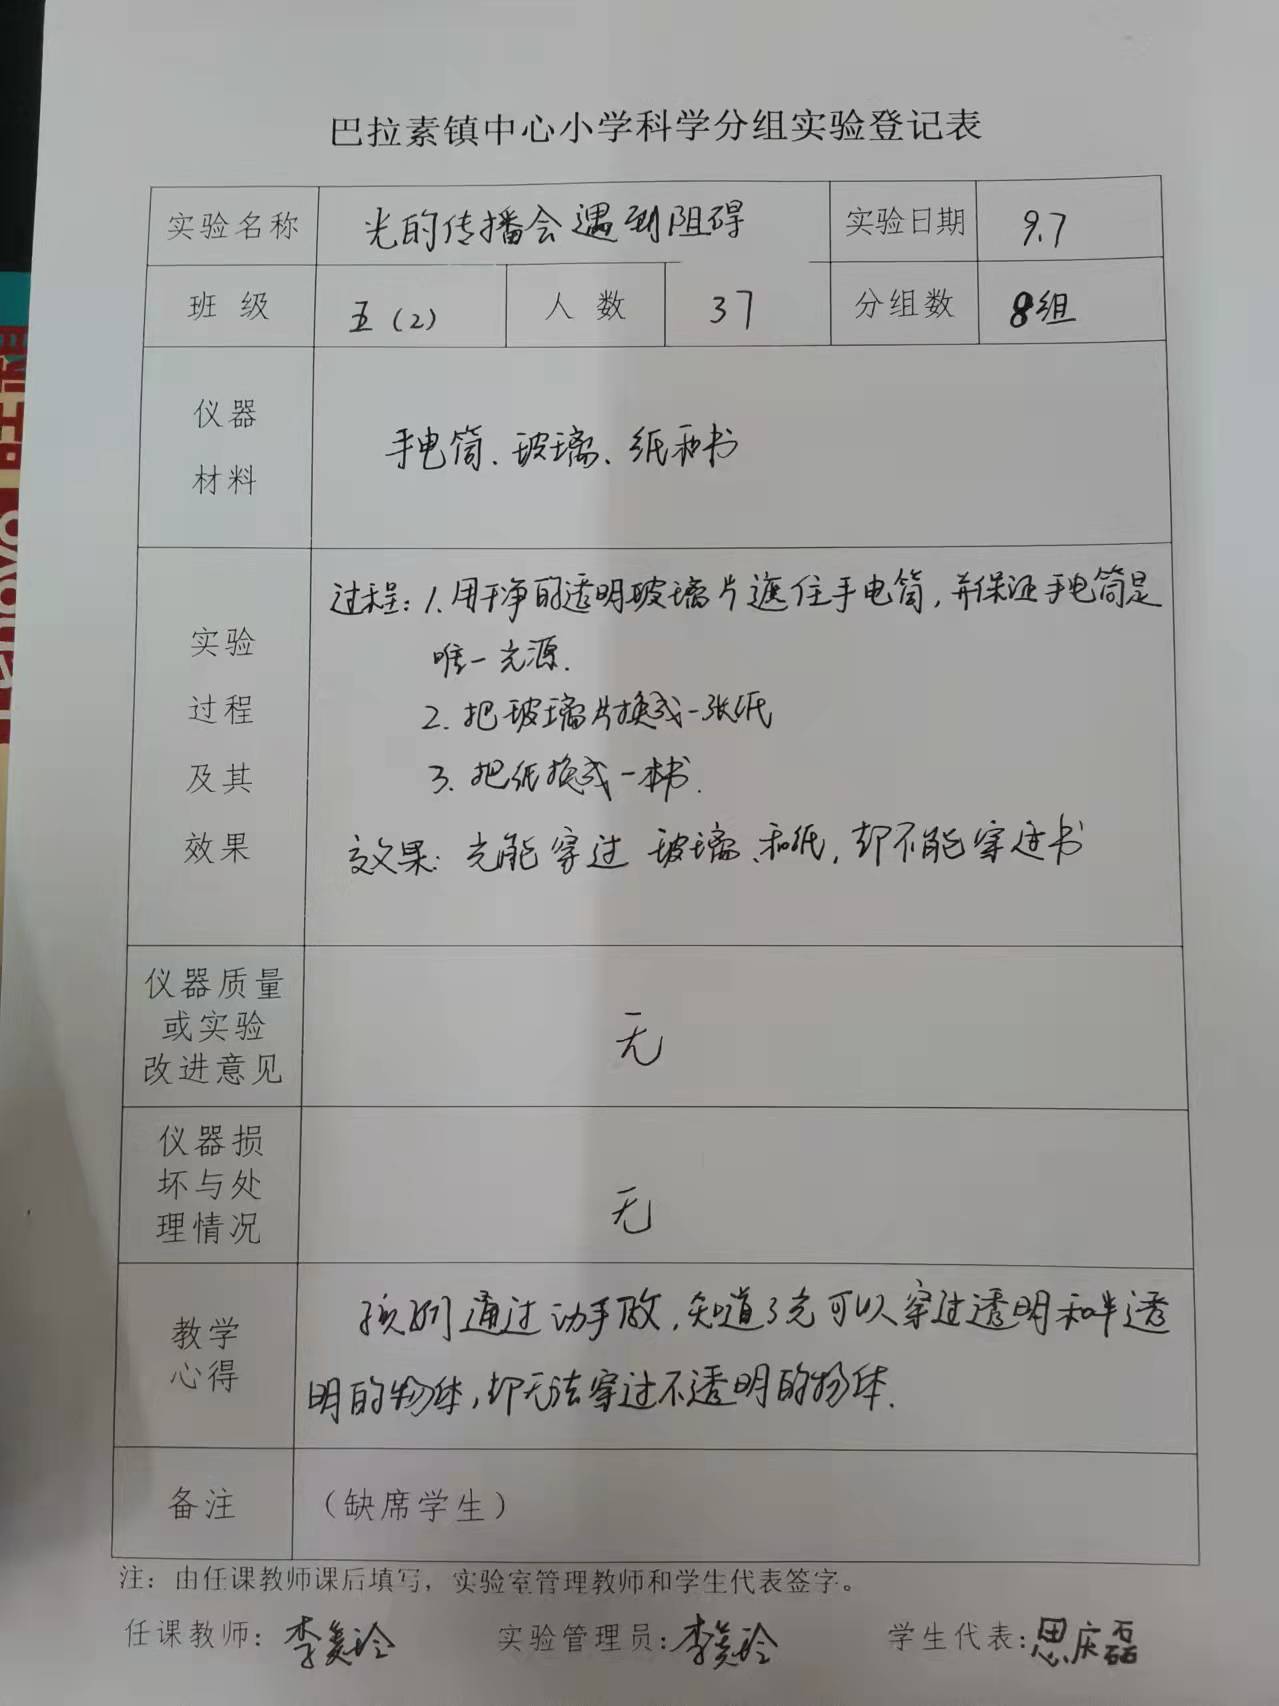 巴拉素镇中心小学科学分组实验登记表
实验名称 光的传播会遇到阻碍 实验日期 9.7
班 级 五(2) 人 数 37 分组数 8组
仪器
材料
手电筒、玻璃、纸和书
实验
过程
及其
效果
过程: 1.用干净的透明玻璃片遮住手电筒,并保证手电筒是
唯一光源.
2.把玻璃片换成一张纸
3.把纸换成一本书.
效果: 光能穿过玻璃、和纸,却不能穿过书
仪器质量
或实验
改进意见
无
仪器损
坏与处
理情况
无
教学
心得
孩子们通过动手做,知道了光可以穿过透明和半透
明的物体,却无法穿过不透明的物体.
备注 (缺席学生)
注:由任课教师课后填写,实验室管理教师和学生代表签字。
任课教师:李美玲 实验管理员:李美玲 学生代表:思庆磊